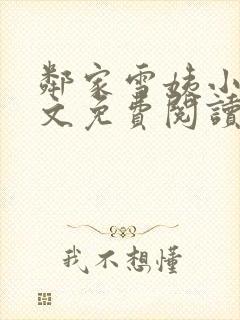 鄰家雪姨小
文免費閱讀
我不想懂